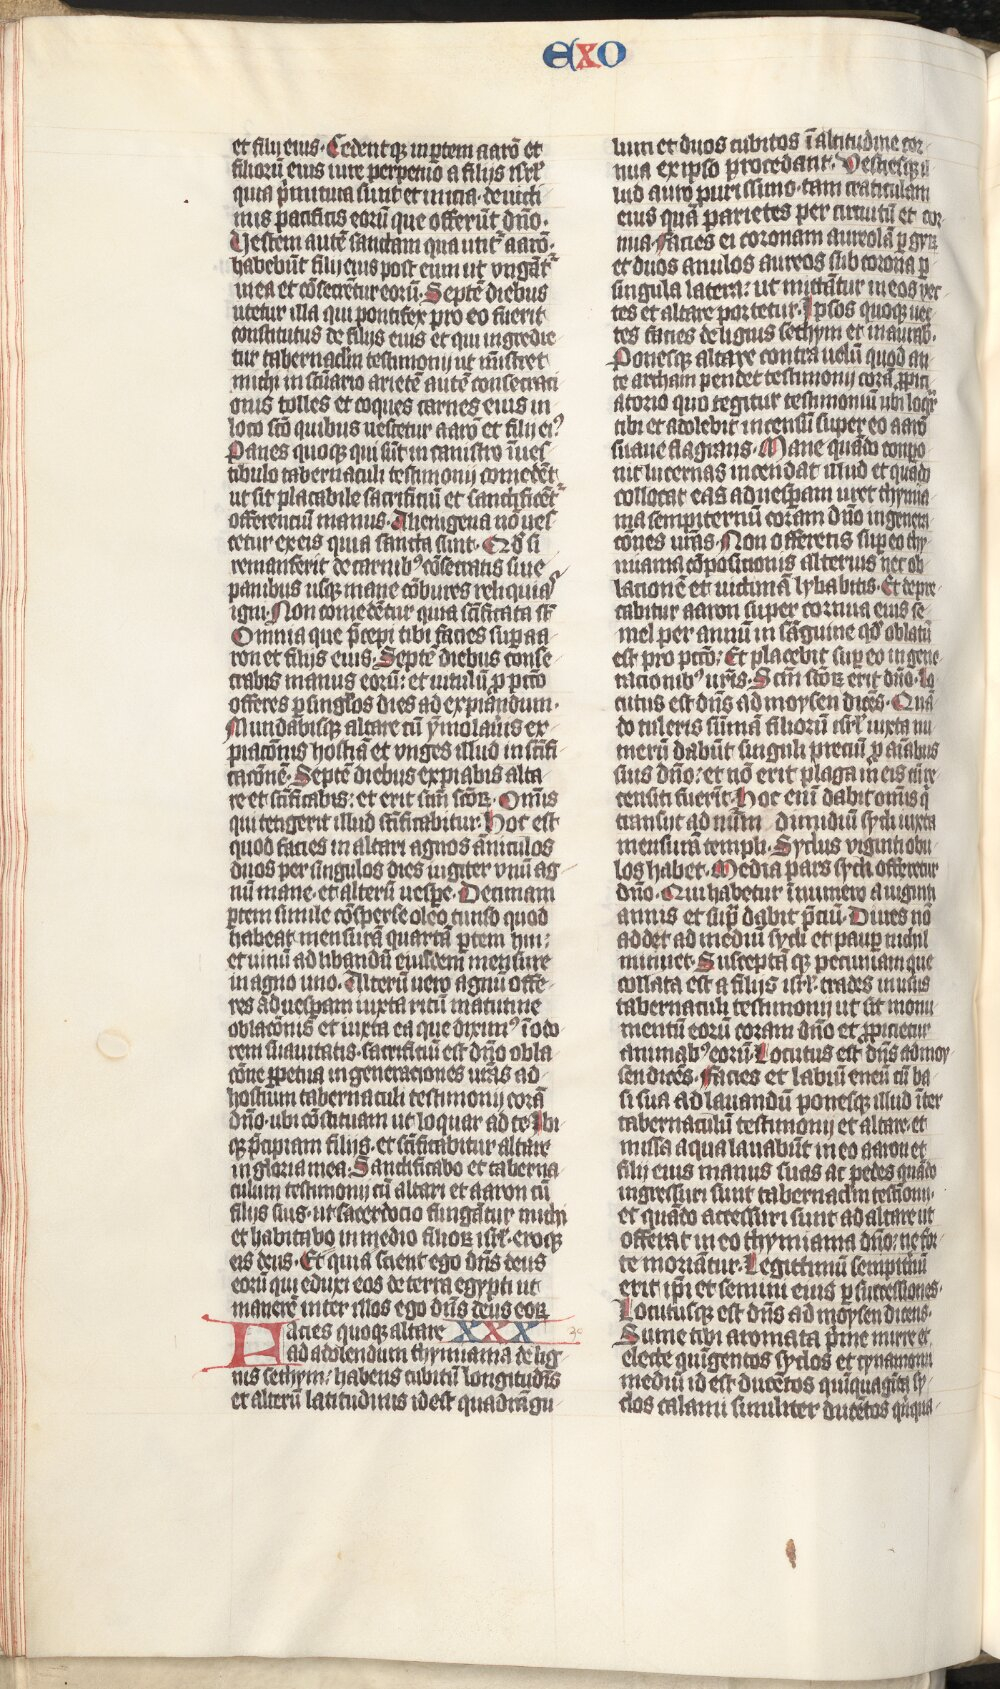 EXO
et filij eius. Cedentqꝫ in ꝑtem aarō et
filiorū eius iure perpetuo a filijs isrl̄
quia p̄mitiua sunt et inicia. de victi
mis pacificis eorū que offerūt dn̄o.
Uestem autē sanctam qua utit᷑ aarō.
habebūt filij eius post eum ut vngāt᷑
in ea et cōsecrētur eorū. Septē diebus
utetur illa qui pontifex pro eo fuerit
constitutus de filijs eius et qui ingredie
tur tabernaclm̄ testimonij ut mīstret
michi in sc̄uario arietē autē consecraci
onis tolles et coques carnes eius in
loco sc̄o quibus uescetur aarō et filij eiꝰ
Panes quoqꝫ qui sūt in canistro ī ues
tibulo tabernaculi testimonij comedēt
ut sit placabile sacrificiū et sanctificēt᷑
offerenciū manus. Alienigena nō ues
cetur ex eis quia sancta sunt. Qd̄ si
remanserit de carnibꝰ cōsecratis siue
panibus usqꝫ mane cōbures reliquias
igni. Non comedētur quia sc̄ificata st̄
Omnia que p̄cepi tibi facies suꝑ aa
ron et filijs eius. Septē diebus conse
crabis manus eorū: et uitulū ꝓ pctō
offeres ꝑ singlos dies ad expiandum.
Mundabisqꝫ altare cū ȳmolaūis ex
piacōnis hostiā et vnges illud in sc̄ifi
cacōnē. Septē diebus expiabis alta
re et sc̄ificabis: et erit scm̄ scōꝝ. Omīs
qui tetigerit illud sc̄ificabitur. Hoc est
quod facies in altari agnos āniculos
duos per singulos dies iugiter vnū ag
nū mane. et alterū uesꝑe. Decimam
ꝑtem simile cōsperse oleo tunso quod
habeat mensurā quartā ꝑtem hin:
et uinū ad libandū eiusdem mensure
in agno uno. Alterū uero agnū offe
res ad uesꝑam iuxta ritū matutine
oblacōnis et iuxta ea que diximꝰ ī odo
rem suauitatis. sacrificiū est dn̄o obla
cōne ꝑpetua in generaciones urās ad
hostium tabernaculi testimonij corā
dn̄o. ubi cōstituam ut loquar ad te. Ibi
qꝫ p̄cipiam filijs. et sc̄ificabitur altare
in gloria mea. Sanctificabo et taberna
culum testimonij cū altari et aaron cū
filijs suis. ut sacerdocio fungātur michi
et habitabo in medio filioꝝ isrl̄. eroqꝫ
eis deus. Et quia scient ego dn̄s deus
eorū qui eduxi eos de terra egypti ut
manerē inter illos ego dn̄s deus eoꝝ
Facies quoqꝫ altare XXX 30
ad adolendum thymiama de lig
nis sethym: habens cubitū longitudīs
et alterū latitudinis id est quadrāgu
lum et duos cubitos ī altitudine cor
nua ex ipso procedant. Uestiesqꝫ il
lud auro purissimo. tam craticulam
eius quā parietes per circuitū et cor
nua. Facies ei coronam aureolā ꝑ gyrū
et duos anulos aureos sub corona ꝑ
singula latera: ut mittātur in eos vec
tes et altare portetur. Ipsos quoqꝫ uec
tes facies de lignis sethym et inaurab.
Ponesqꝫ altare contra uelū quod an
te archam pendet testimonij corā ꝓpici
atorio quo tegitur testimoniū ubi loqr̄
tibi et adolebit incensū super eo aarō
suaue flagrans. Mane quādo compo
nit lucernas incendat illud et quādo
collocat eas ad uesꝑam uret thymia
ma sempiternū coram dn̄o in genera
cōnes urās. Non offeretis suꝑ eo thy
miama cōpositionis alterius nec ob
lacionē et uictimā lybabitis. Et depre
cabitur aaron super cornua eius se
mel per annū in sāguine qd̄ oblatū
est pro pctō: Et placebit suꝑ eo in gene
racionibꝰ urīs. Scm̄ scōꝝ erit dn̄o. Lo
cutus est dn̄s ad moysen dicēs. Quā
do tuleris sūmā filiorū isrl̄ iuxta nu
merū dabūt singuli precium ꝓ aīabus
suis dn̄o: et nō erit plaga in eis cū re
censiti fuerīt. Hoc enī dabit omīs qͥ
transit ad nōm dimidiū sycli iuxta
mensurā templi. Syclus viginti obu
los habet. Media pars sycli offeretur
dn̄o. Qui habetur ī numero a viginti
annis et sup̄ dabit p̄ciū. Diues nō
addet ad mediū sycli et pauꝑ nichil
minuet. Susceptā qꝫ pecuniam que
collata est a filijs isrl̄. trades in usus
tabernaculi testimonij ut sit monu
mentū eorū coram dn̄o et ꝓpicietur
animabꝰ eorū. Locutus est dn̄s ad moy
sen dicēs. Facies et labiū eneū cū ba
si sua ad lauandū ponesqꝫ illud īter
tabernaculū testimonij et altare. et
missa aqua lauabūt in eo aaron et
filij eius manus suas ac pedes quādo
ingressuri sunt tabernaclm̄ testiōnij.
et quādo accessuri sunt ad altare ut
offerāt in eo thymiama dn̄o: ne for
te moriātur. Legittimū sempitnū
erit ip̄i et semini eius ꝑ successiones.
Locutusqꝫ est dn̄s ad moysen dicens.
Sume tibi aromata p̄me mirre et
electe quīgentos syclos et cynamomi
mediū id est ducētos quīquagīta sy
clos calami similiter ducētos quīqua